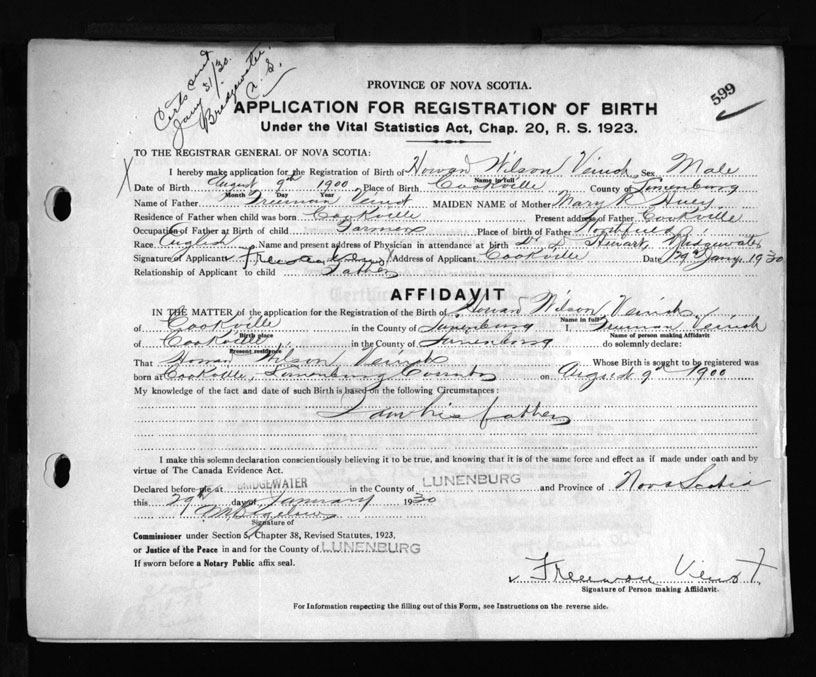 Certs sent
Jany 31/30.
Bridgewater
N. S.
599
PROVINCE OF NOVA SCOTIA.
APPLICATION FOR REGISTRATION OF BIRTH
Under the Vital Statistics Act, Chap. 20, R. S. 1923.
TO THE REGISTRAR GENERAL OF NOVA SCOTIA:
I hereby make application for the Registration of Birth of Howard Wilson Veinot Sex Male
Name in full
Date of Birth August 9th 1900 Place of Birth Cookville County of Lunenburg
Month Day Year
Name of Father Freeman Veinot MAIDEN NAME of Mother Mary
Residence of Father when child was born Cookville Present address of Father Cookville
Occupation of Father at Birth of child Farmer Place of birth of Father Northfield
Race English Name and present address of Physician in attendance at birth Dr Stewart, Bridgewater
Signature of Applicant Freeman Veinot Address of Applicant Cookville Date 29th Jany. 1930
Relationship of Applicant to child Father
AFFIDAVIT
IN THE MATTER of the application for the Registration of the Birth of Howard Wilson Veinot
Name in full
of Cookville in the County of Lunenburg I, Freeman Veinot
Birth place Name of person making Affidavit
of Cookville in the County of Lunenburg do solemnly declare:
Present residence
That Howard Wilson Veinot Whose Birth is sought to be registered was
born at Cookville, Lunenburg County on August 9th 1900
My knowledge of the fact and date of such Birth is based on the following Circumstances:
I am his father
I make this solemn declaration conscientiously believing it to be true, and knowing that it is of the same force and effect as if made under oath and by
virtue of The Canada Evidence Act.
Declared before me at BRIDGEWATER in the County of LUNENBURG and Province of Nova Scotia
this 29th day of January 1930
Signature of
Commissioner under Section 5, Chapter 38, Revised Statutes, 1923,
or Justice of the Peace in and for the County of LUNENBURG
If sworn before a Notary Public affix seal.
Freeman Veinot
Signature of Person making Affidavit.
For Information respecting the filling out of this Form, see Instructions on the reverse side.